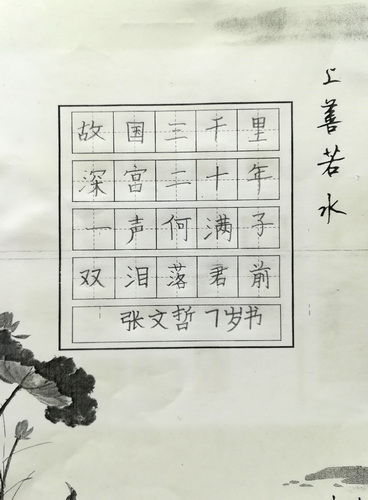 故国三千里
深宫二十年
一声何满子
双泪落君前
张文哲 7岁书
上善若水